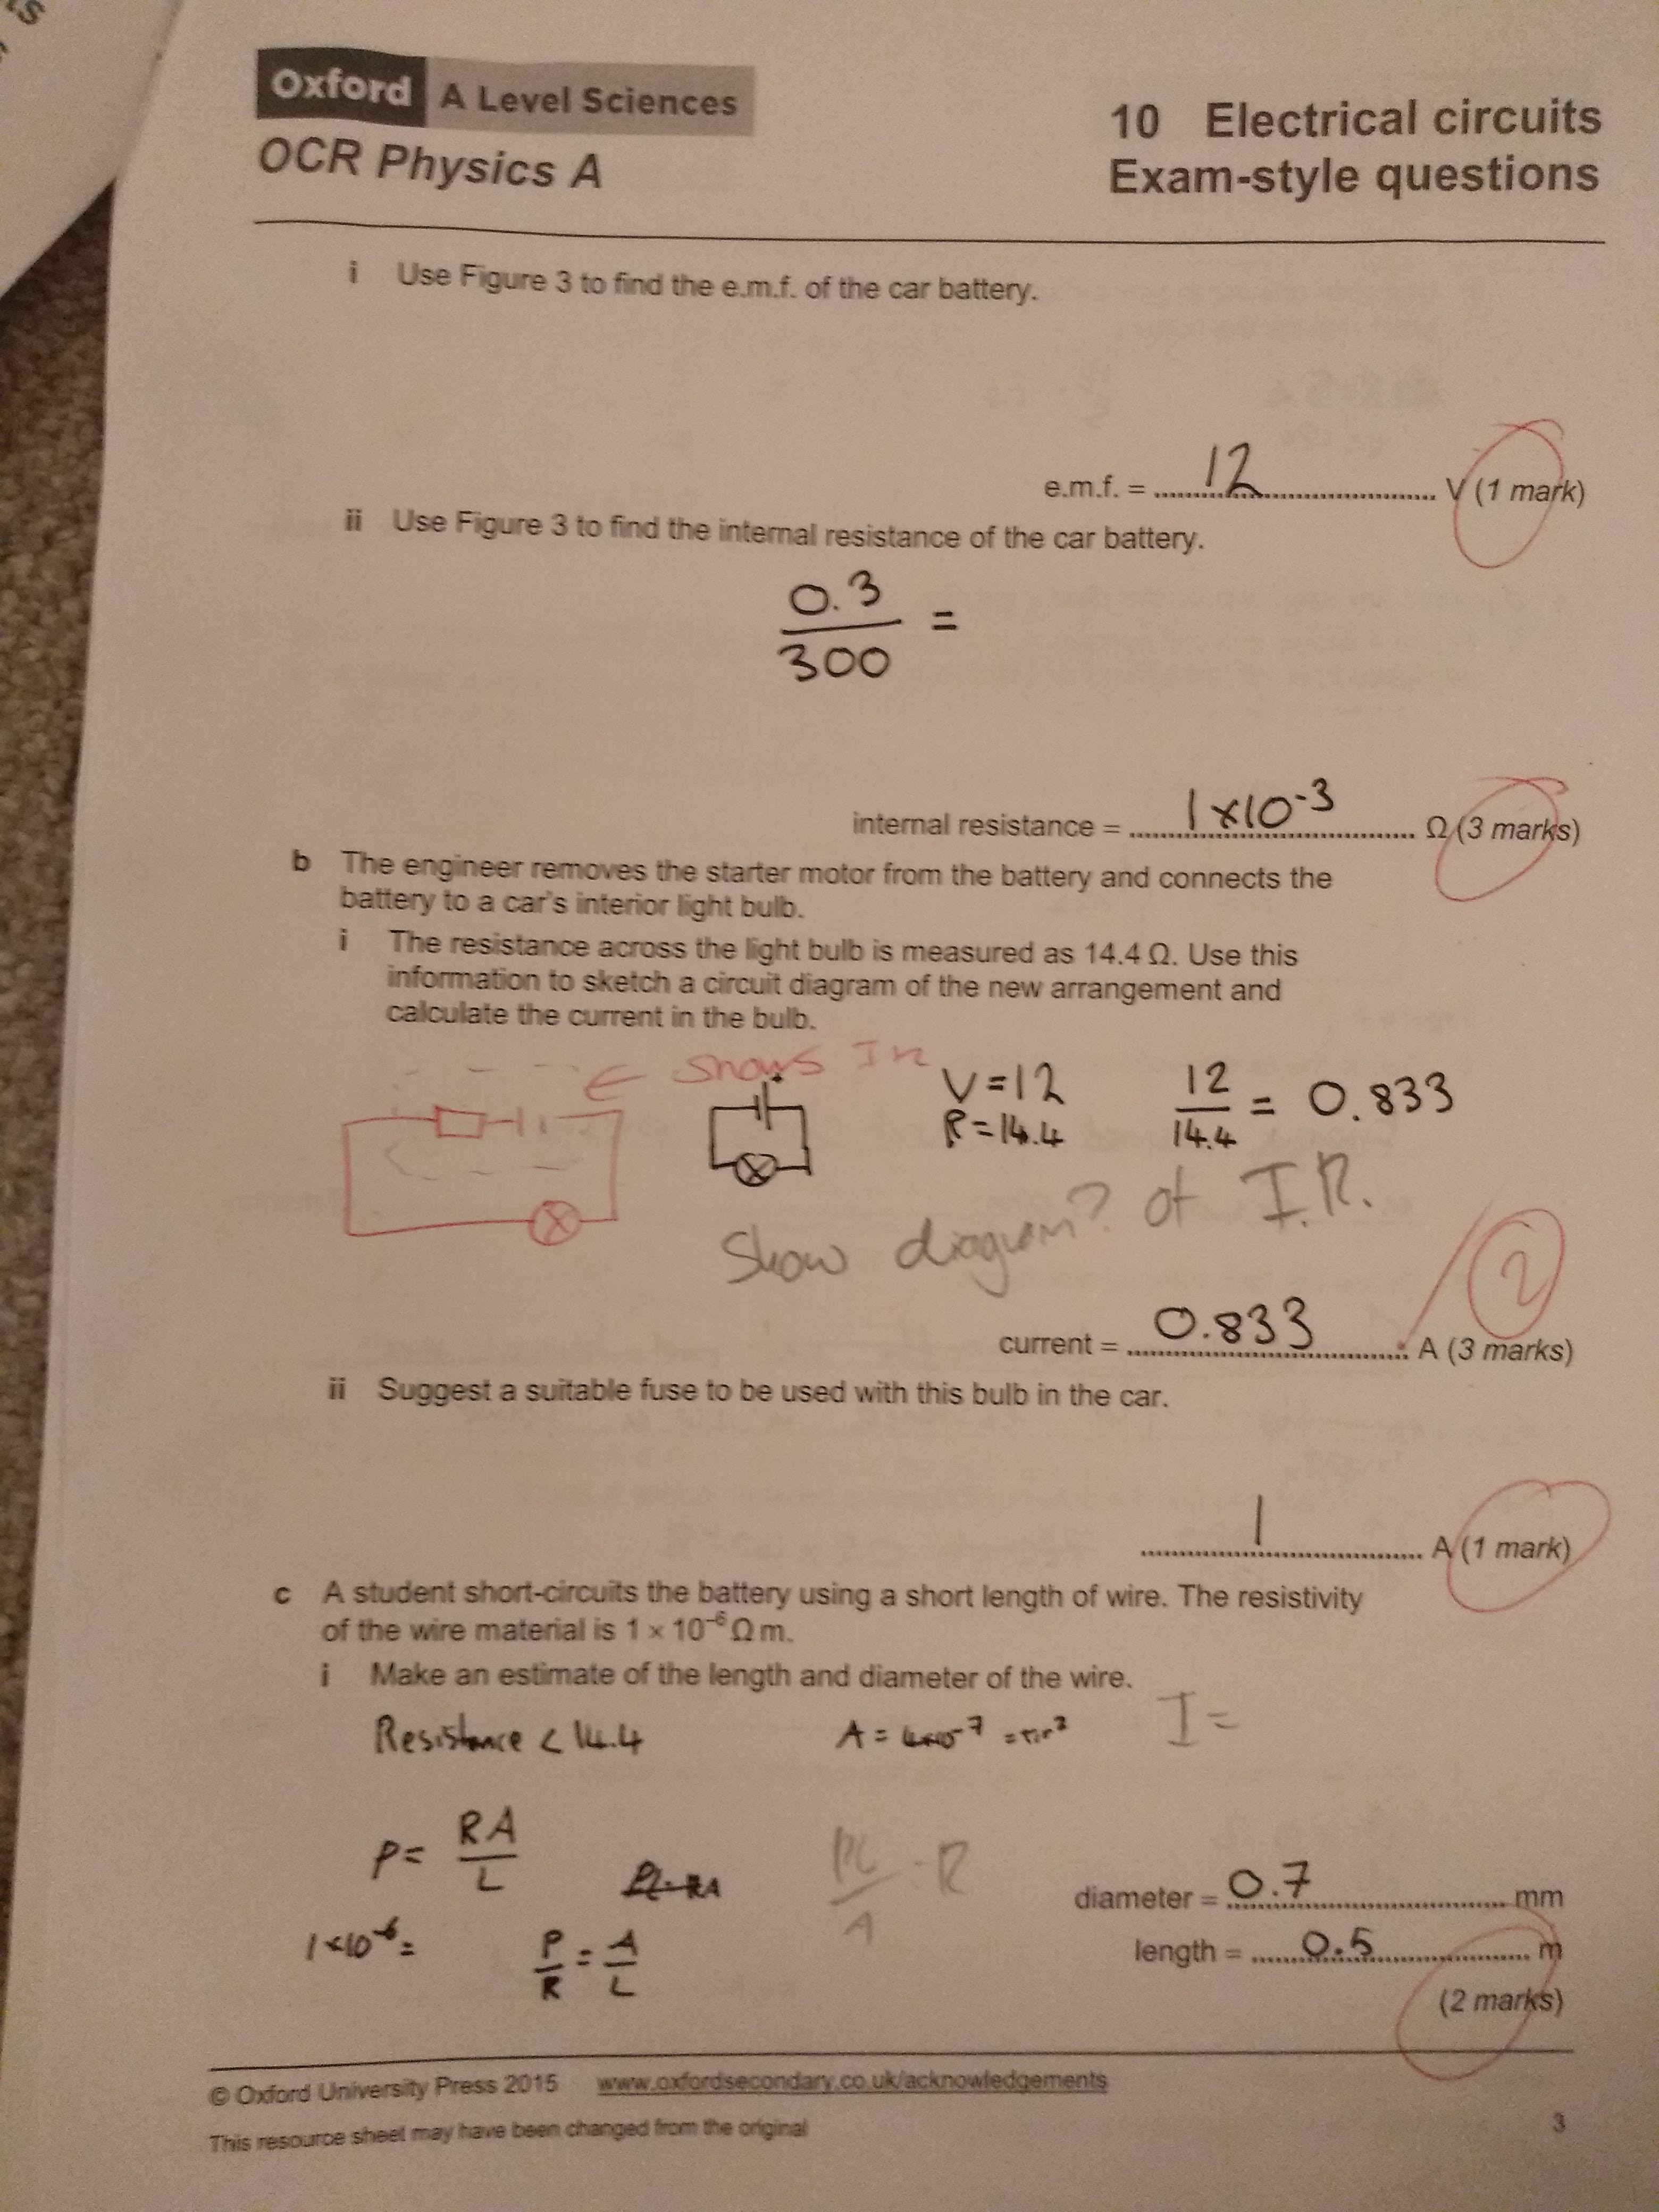 Oxford A Level Sciences
OCR Physics A
10 Electrical circuits
Exam-style questions
i Use Figure 3 to find the e.m.f. of the car battery.
e.m.f. = 12 V (1 mark)
ii Use Figure 3 to find the internal resistance of the car battery.
0.3
300 =
internal resistance = 1 × 10⁻³ Ω (3 marks)
b The engineer removes the starter motor from the battery and connects the
battery to a car's interior light bulb.
i The resistance across the light bulb is measured as 14.4 Ω. Use this
information to sketch a circuit diagram of the new arrangement and
calculate the current in the bulb.
← shows
V = 12
R = 14.4
12
14.4 = 0.833
Show diagram? of I.R.
2
current = 0.833 A (3 marks)
ii Suggest a suitable fuse to be used with this bulb in the car.
1 A (1 mark)
c A student short-circuits the battery using a short length of wire. The resistivity
of the wire material is 1 × 10⁻⁶ Ω m.
i Make an estimate of the length and diameter of the wire.
Resistance < 14.4 A = 4×10⁻⁷ = πr² I =
ρ = RA
L
ρL = R
A
diameter = 0.7 mm
1×10⁻⁶ = ρ = A
R L
length = 0.5 m
(2 marks)
© Oxford University Press 2015 www.oxfordsecondary.co.uk/acknowledgements
This resource sheet may have been changed from the original
3